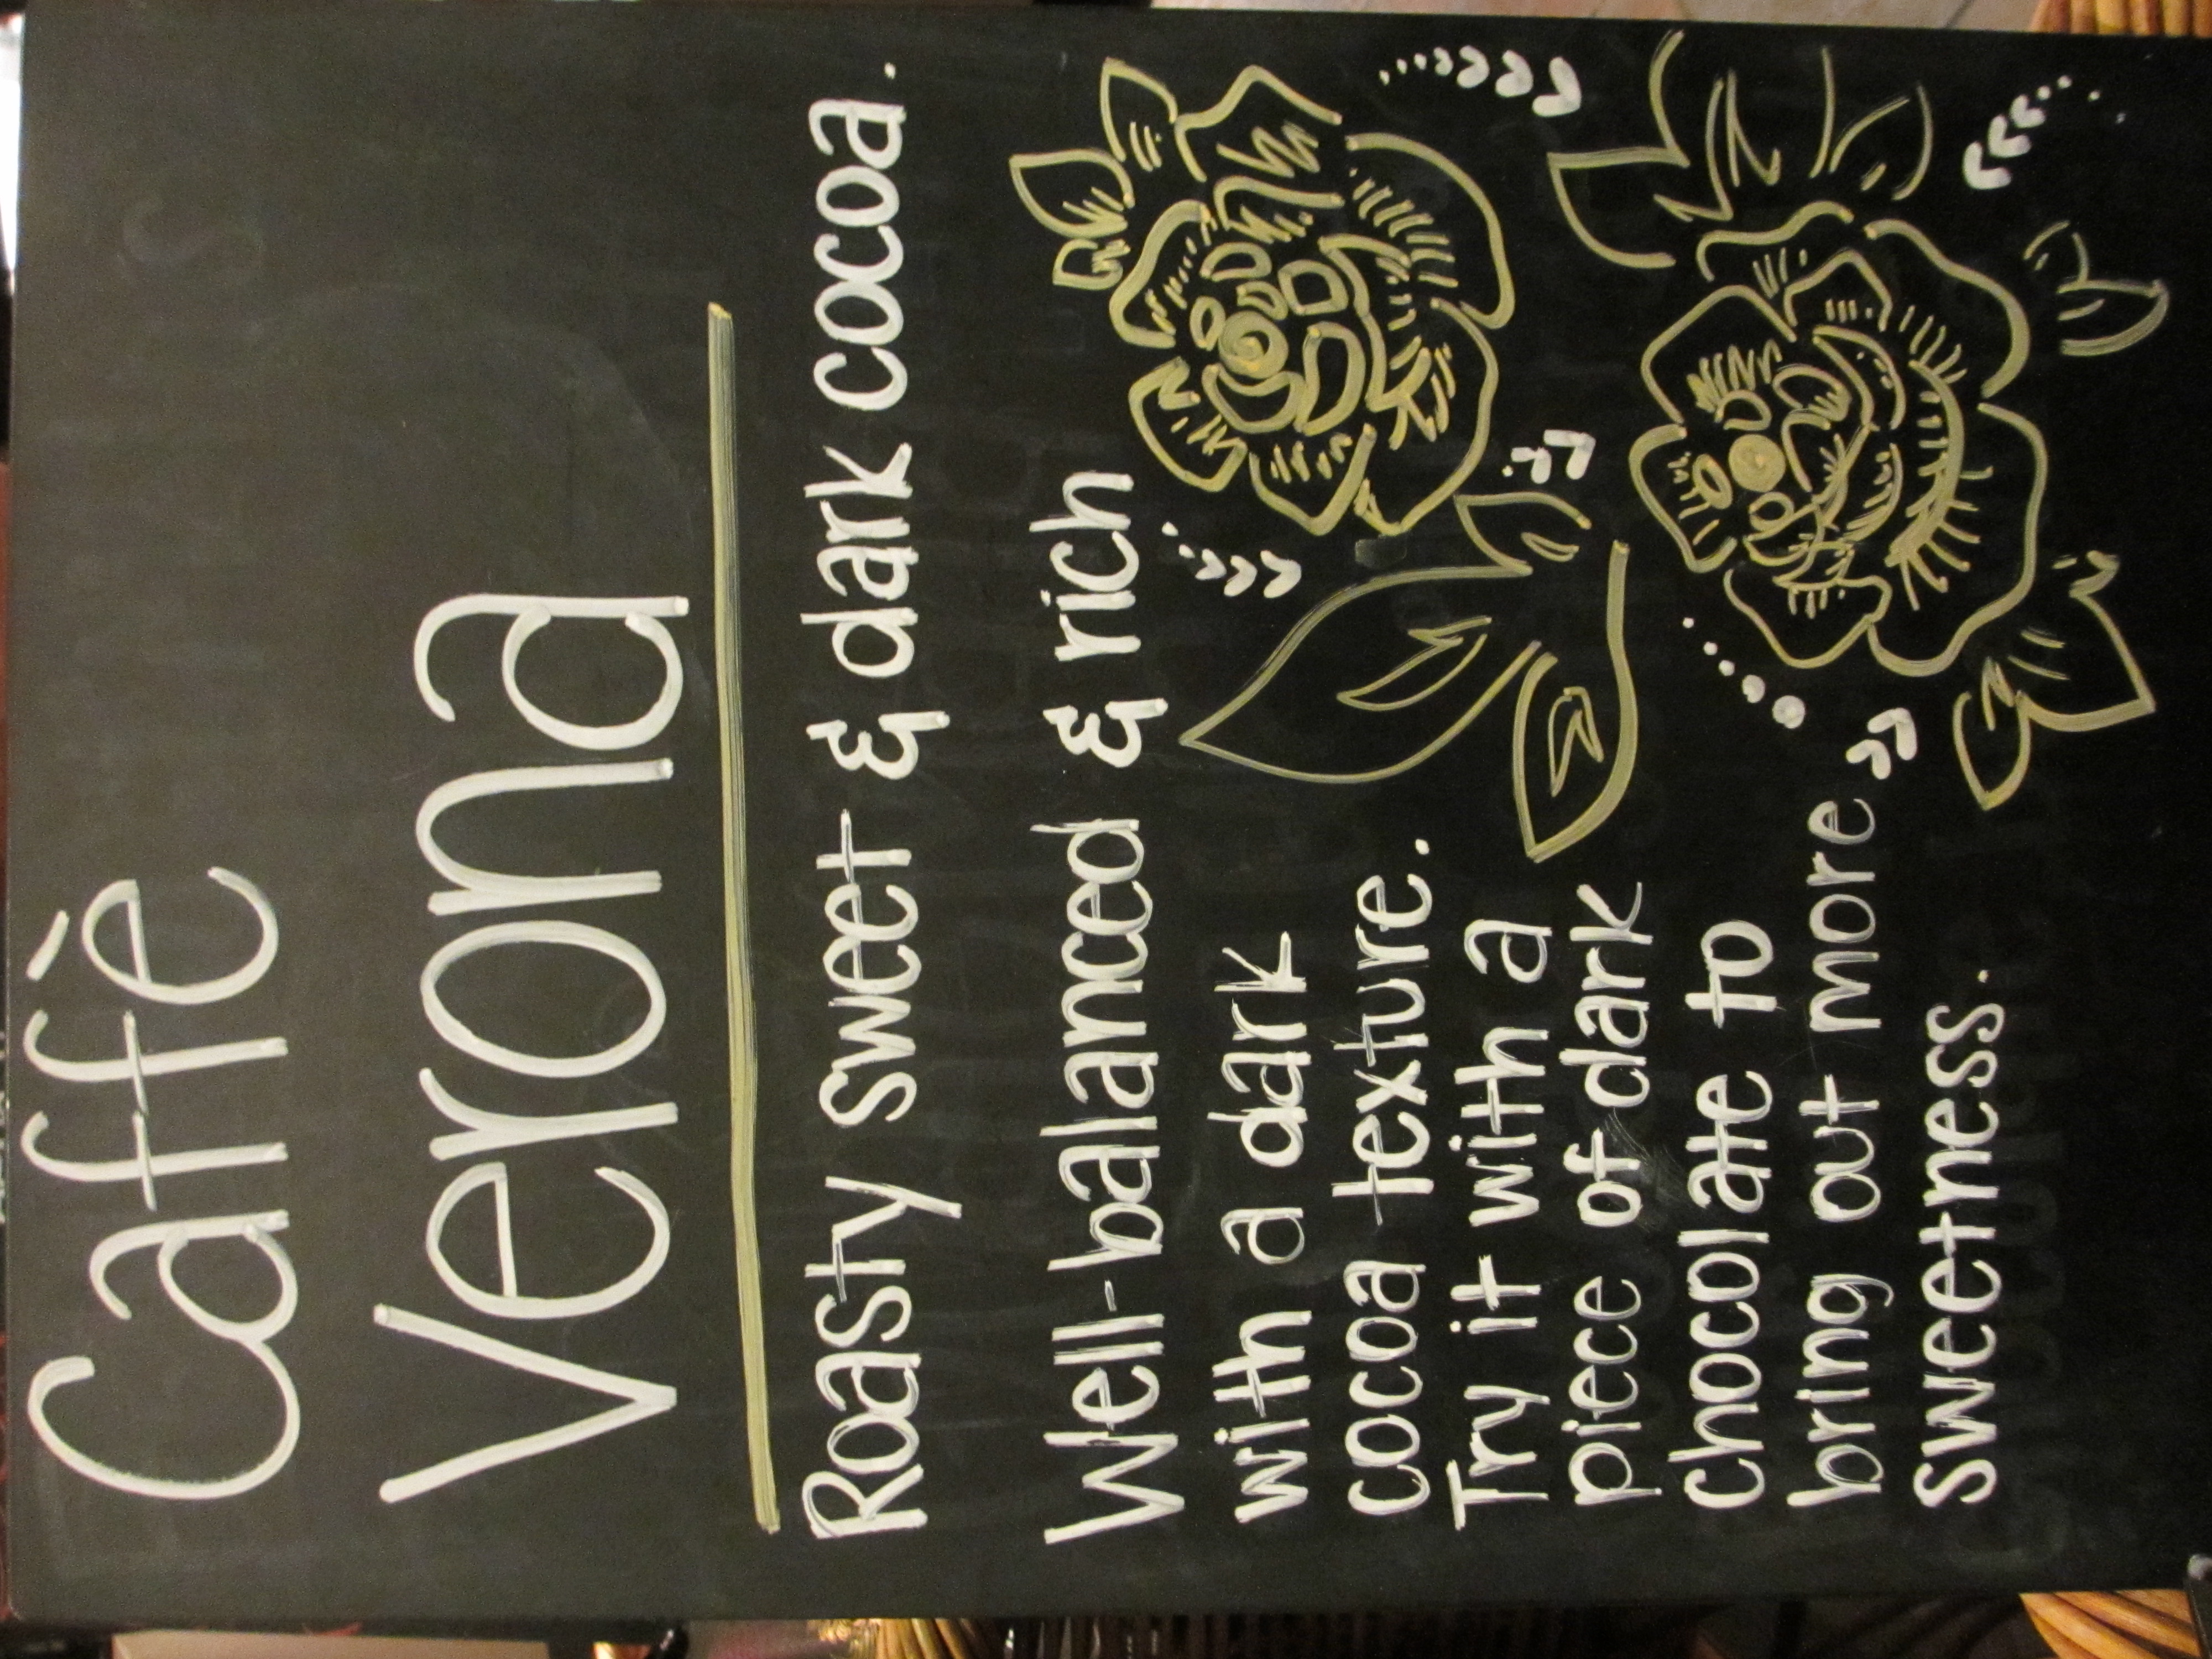 Caffè
Verona
Roasty sweet & dark cocoa.
Well-balanced & rich
with a dark
cocoa texture.
Try it with a
piece of dark
chocolate to
bring out more
sweetness.